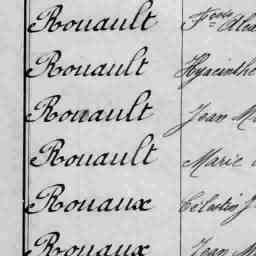 Rouault Fçois
Rouault Hyacinthe
Rouault Jean
Rouault Marie
Rouaux Célestin J
Rouaux Jean M